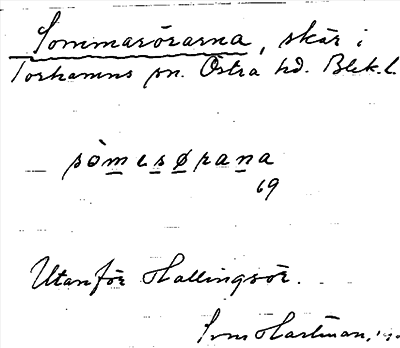 Sommarörarna, skär i
Torhamns sn. Östra hd. Blek. l.
sòmesørana
69
Utanför Hallingsör.
Sven Hartman,